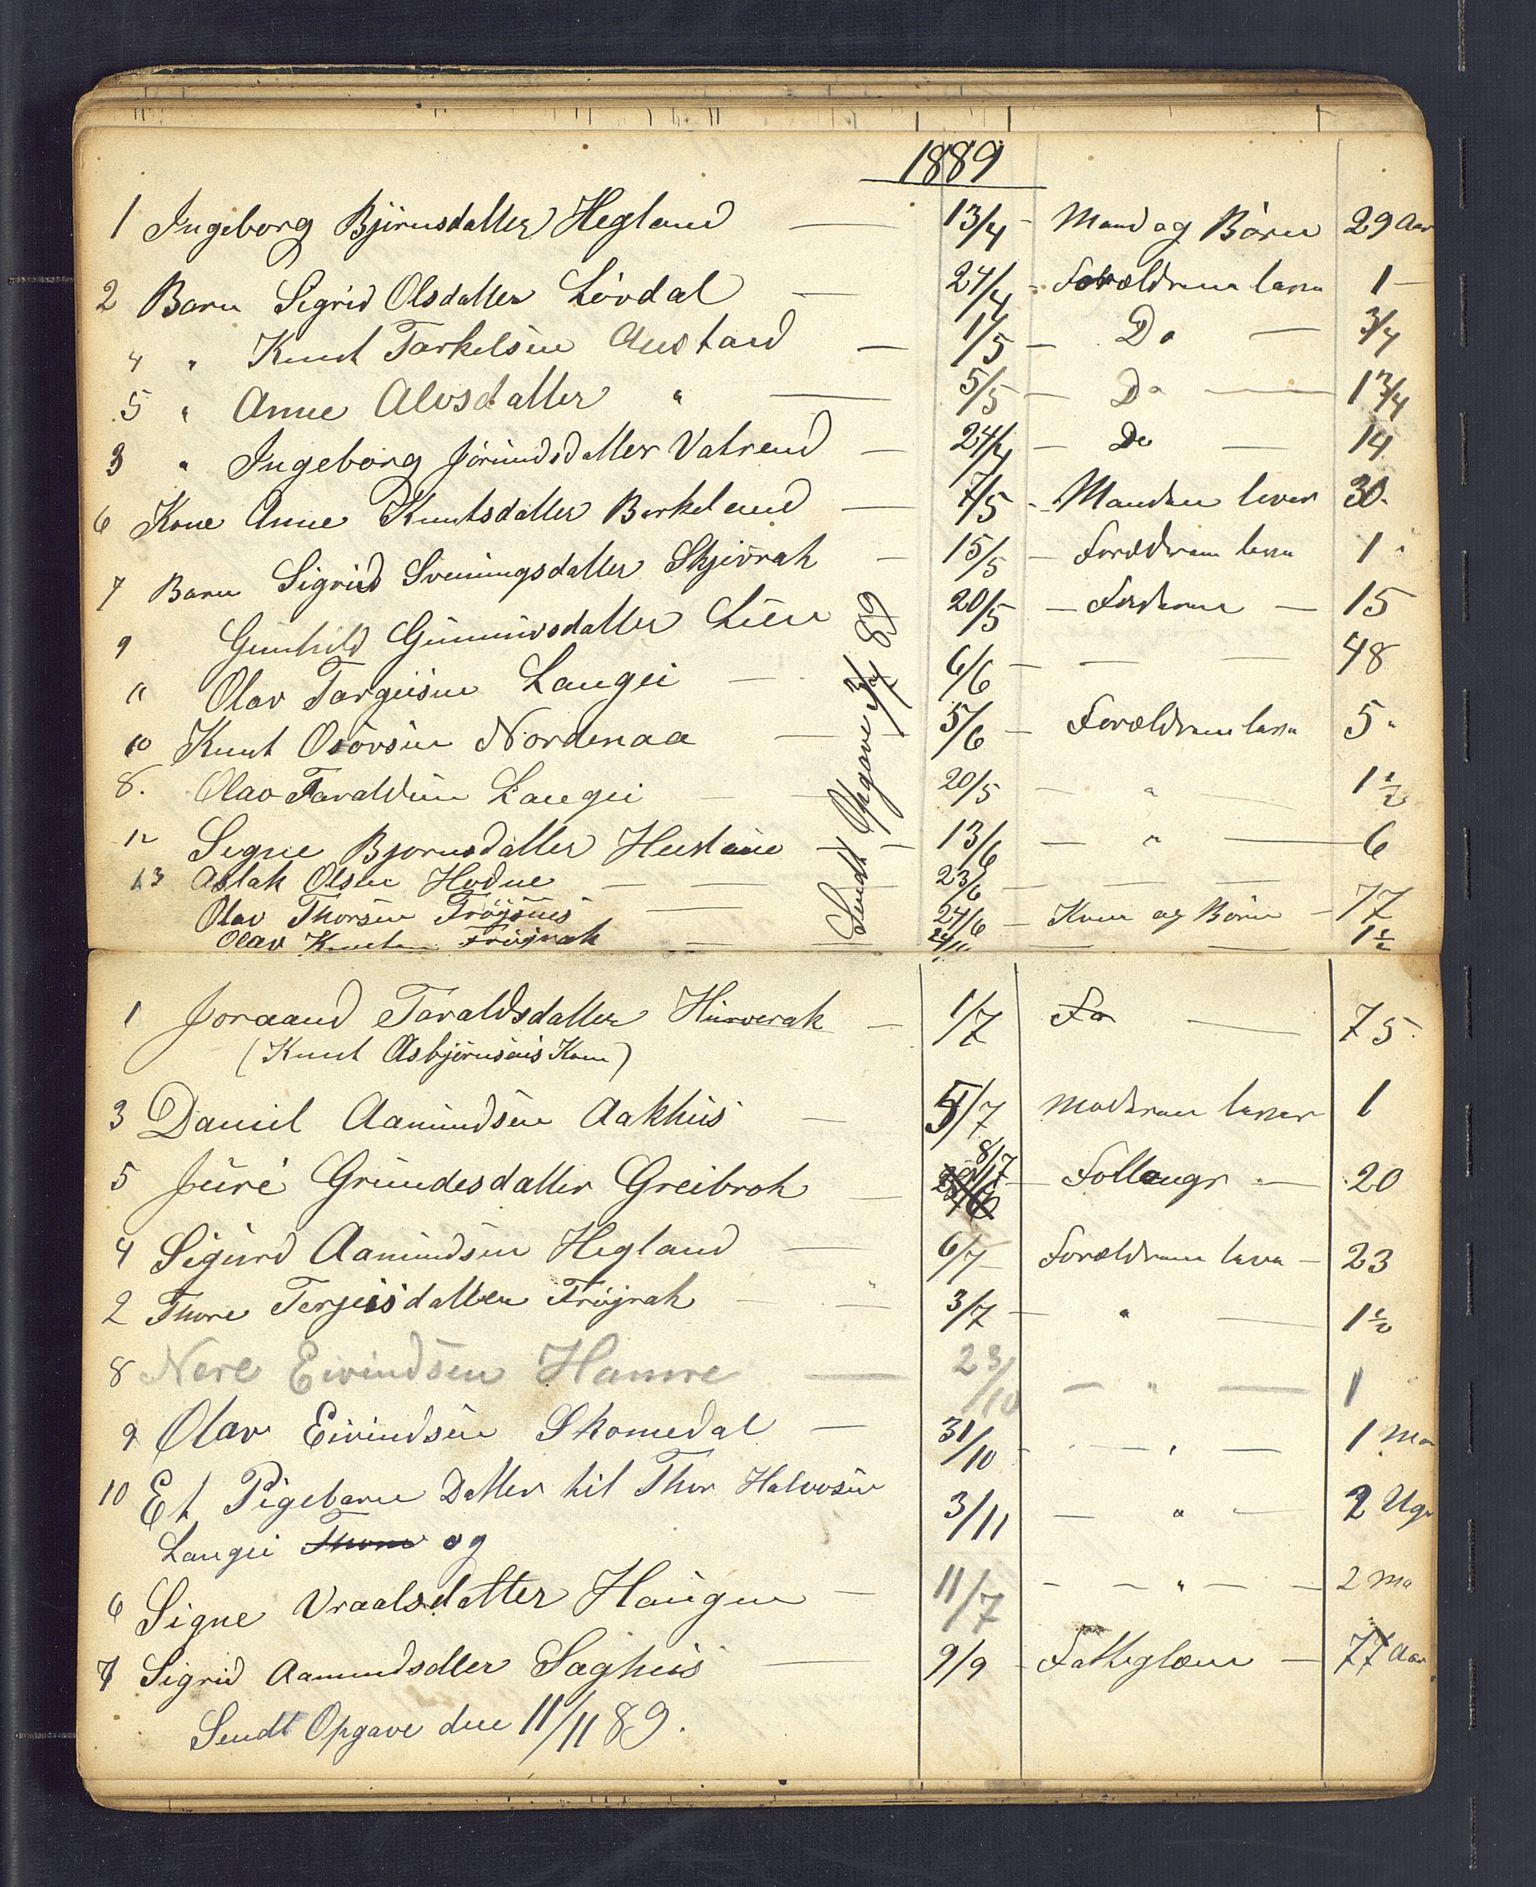 1889
1 Ingeborg Bjørnsdatter Hegland — 13/4 - Mand og Børn 29 Aar
2 Barn Sigrid Olsdatter Løvdal — 24/4 - Forældrene leva 1 —
4 " Knut Tarkelsen Austad — 1/5 — Do — 3/4
5 " Anne Alvsdatter " — 5/5 — Do — 1 3/4
3 " Ingeborg Jørundsdatter Vatrend — 24/4 — Do — 14
6 Kone Anne Knutsdatter Berkeland — 7/5 - Manden lever 30
7 Barn Sigrid Sveinungsdatter Skjivrak — 15/5 — Forældrene leva 1 "
9 Gunhild Gunnuvsdatter Lien 20/5 — — 15
11 Olav Targeisen Langei — 6/6 — — — 48
10 Knut Osovsen Nordenaa — 5/6 — Forældrene leva 5 "
8. Olav Taraldsen Langei — 20/5 — " — 1 1/2
12 Signe Bjornsdatter — 13/6 — " — 6
13 Aslak Olsen Hodne — — — 23/6 — — —
Olav Thorsen Frøysnes — 24/6 — Kone og Børn — 77
Olav Knutsen Frøysnak — 24/6 — — 1 1/2
Sendt Opgave 3/7 89
1 Joraand Taraldsdatter — 1/7 — 75
(Knut Asbjørnsens Kone)
3 Daniel Aamundsen Aakhus — 5/7 Moderen lever 1
5 Juré Grundesdatter Greibrok — 8/7 — — 20
4 Sigurd Aamundsen Hegland — 6/7 — Forældrene leva — 23
2 Thore Terjeisdatter Frøjrak — — 3/7 — " — 1 1/2
8 Nere Eivindsen Hamre — 23/10 — " — 1
9 Olav Eivindsen Skomedal — 31/10 - — " — 1 Ma
10 Et Pigebarn Datter til Thor Halvosen
Langei og 3/11 — " — 2 Ugr
6 Signe Vraalsdatter Haugen — 11/7 - — " — — 2 Ma
7 Sigrid Aamundsdter Saghus — 9/9 - Fattiglem — 77 Aar
Sendt Opgave den 11/11 89.